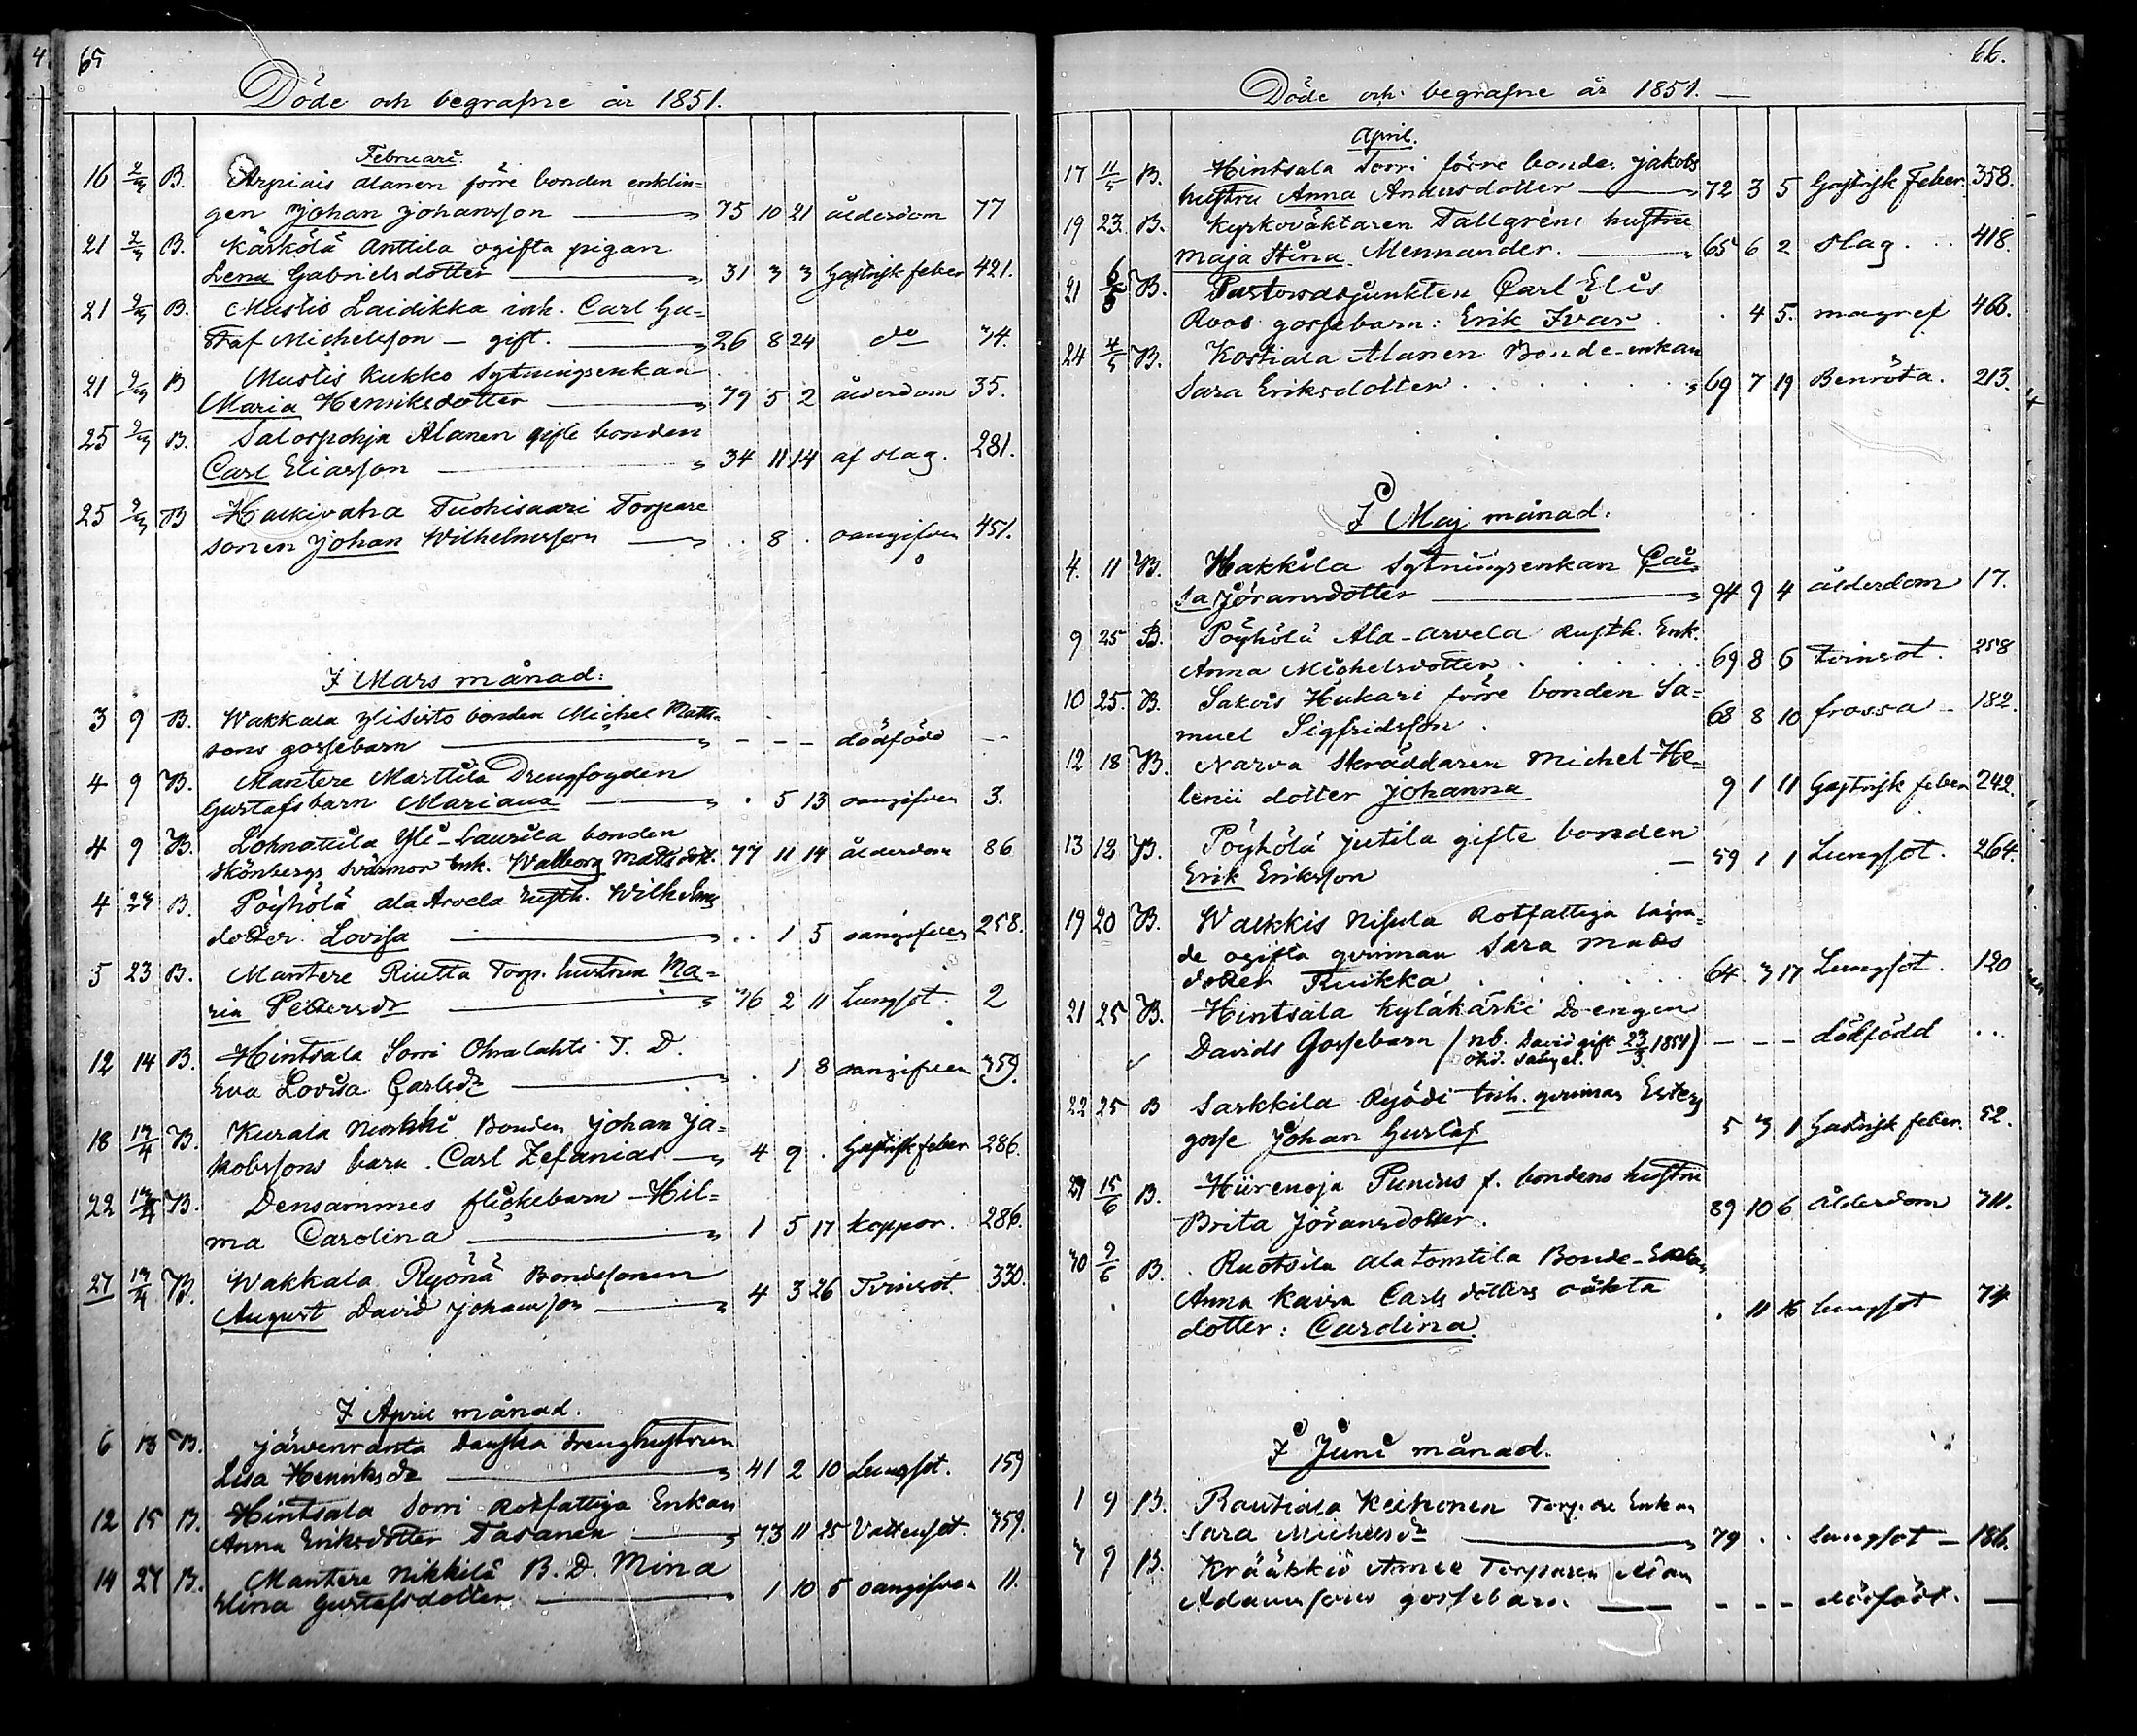 65
Döde och begrafne år 1851.
Februari.
16 2/3 B. Arpiais Alanen förre bonden enklin=
gen Johan Johansson 75 10 21 ålderdom 77
21 2/3 B. Kärkölä Anttila ogifta pigan
Lena Gabrielsdotter 31 3 3 Gastrisk feber 421.
21 2/3 B. Mustis Laidikka inh. Carl Gu=
staf Michelsson – gift. 26 8 24 do 34.
21 2/3 B Mustis Kukko Sytningsenkan
Maria Henriksdotter 79 5 2 ålderdom 35.
25 2/3 B. Salospohja Alanen gifte bonden
Carl Eliasson 34 11 14 af slag. 281.
25 2/3 B Halkivaha Tuohisaari Torpare
sonen Johan Wilhelmsson .. 8 . oangifven 451.
I Mars månad:
3 9 B. Wakkala Ylisisto bonden Michel Matts=
sons gossebarn - - - dödfödd --
4 9 B. Mantere Marttila Drengfogden
Gustafs barn Mariana . 5 13 oangifven 3.
4 9 B. Lohnottila Yli-Laurila bonden
Skönbergs Svärmor Enk. Walborg Mattsdott. 77 11 14 ålderdom 86
4 23 B. Pöyhölä ala Arvela Rusth. Wilhelms
dotter Lovisa .. 1 5 oangifven 258.
5 23 B. Mantere Riutta Torp. hustrun Ma=
ria Pettersdr 76 2 11 Lungsot. 2
12 14 B. Hintsala Sorri Ohralahti T. D.
Eva Lovisa Carlsdr . 1 8 oangifven 359.
18 13/4 B. Kurala Bonden Johan Ja=
kobssons barn. Carl Zefanias 4 9 . Gastrisk feber 286.
22 13/4 B. Densammes flickebarn Hil=
ma Carolina 1 5 17 koppor. 286.
27 13/4 B. Wakkala Ryönä Bondesonen
August David Johansson 4 3 26 Tvinsot. 330.
I April månad.
6 13 B. Järvenranta Danska drenghustrun
Lisa Henriksdr 41 2 10 Lungsot. 159
12 15 B. Hintsala Sorri Rotfattiga Enkan
Anna Eriksdotter Tasanen 73 11 25 Vattensot. 359.
14 27 B. Mantere Nikkilä B. D. Mina
Elina Gustafsdotter 1 10 5 oangifven 11.
66.
Döde och begrafne år 1851.
April.
17 11/5 B. Hintsala Sorri förre bonde Jakobs
hustru Anna Andersdotter 72 3 5 Gastrisk Feber. 358.
19 23. B. Kyrkoväktaren Tallgréns hustru
Maja Stina Mennander. 65 6 2 slag. .. 418.
21 B. Pastorsadjunkten Carl Elis
Roos gossebarn: Erik Ivar . . 4 5. magref 460.
24 4/5 B. Kostiala Alanen Bonde-enkan
Sara Eriksdotter 69 7 19 Benröta. 213.
I Maj månad:
4. 11 B. Hakkila Sytningsenkan Cai
sa Jöransdotter 94 9 4 ålderdom 17.
9 25 B. Pöyhölä Ala-Arvela Rusth. Enk.
Anna Michelsdotter 69 8 6 Tvinsot. 258
10 25. B. Sakois Hukari förre bonden Sa=
muel Sigfridsson 68 8 10 frossa - 182.
12 18 B. Narva Skräddaren Michel He=
lenii dotter Johanna 9 1 11 Gastrisk feber 242.
13 12 B. Pöyhölä Jutila gifte bonden
Erik Eriksson 59 1 1 Lungsot. 264.
19 20 B. Walkkis Nisula Rotfattiga
de ogifta qvinnan Sara Mads
dotter Ruikka 64. 3 17 Lungsot. 120
21 25 B. Hintsala Kyläkärki Drengen
Davids Gossebarn (nb. David gift 23/3 1851) - - - dödfödd ...
22 25 B Sarkkila Ryödi Inh. qvinnas Esters
gosse Johan Gustaf 5 3 1 Gastrisk feber. 52.
15/6 B. Hiirenoja Punius f. bondens hustru
Brita Jöransdotter. 89 10 6 ålderdom 311.
30 9/6 B. Ruotsila Alatomtila Bonde-Enkan
Anna Kaisa Carlsdotters oäkta
dotter: Carolina . 11 16 lungsot 74
I Juni månad.
1 9 B. Rautiala Keihonen Torpare Enkan
Sara Michelsdr 79 . . Lungsot - 186.
3 9 B. Krääkkiö Torparen
Adamssons gossebarn. - - - dödfödt. —